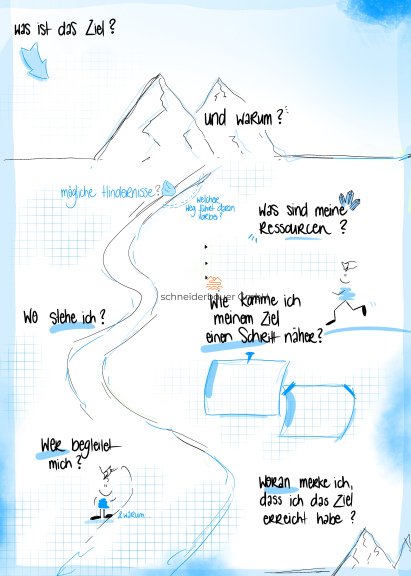 was ist das Ziel?
und warum?
mögliche Hindernisse?
welcher
Weg führt daran
vorbei?
was sind meine
Ressourcen?
schneiderbauer GmbH
Wie komme ich
meinem Ziel
einen Schritt näher?
Wo stehe ich?
Wer begleitet
mich?
& warum
Woran merke ich,
dass ich das Ziel
erreicht habe?